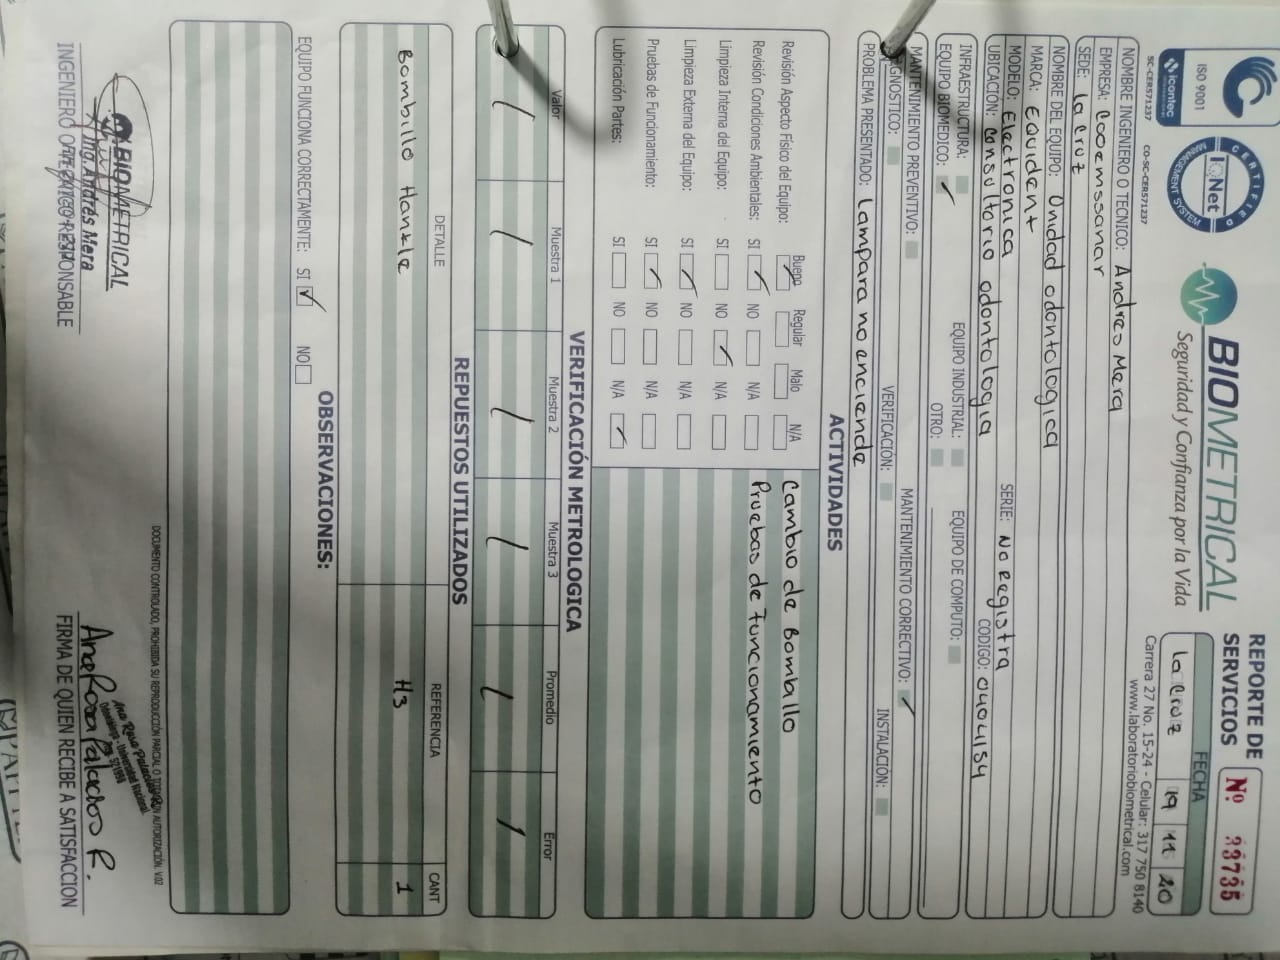 CERTIFIED
IQNet
MANAGEMENT SYSTEM
ISO 9001
icontec
SC-CER571237
CO-SC-CER571237
BIOMETRICAL
Seguridad y Confianza por la Vida
REPORTE DE SERVICIOS
Nº 33735
FECHA
La Cruz 19 11 20
Carrera 27 No. 15-24 - Celular: 317 750 8140
www.laboratoriobiometrical.com
NOMBRE INGENIERO O TECNICO: Andres Mera
EMPRESA: Cooemssanar
SEDE: La Cruz
NOMBRE DEL EQUIPO: Unidad odontologica
MARCA: Equident
MODELO: Electronica SERIE: No Registra
UBICACIÓN: Consultorio odontologia CODIGO: 0404154
INFRAESTRUCTURA: EQUIPO INDUSTRIAL: EQUIPO DE COMPUTO:
EQUIPO BIOMEDICO: ✓ OTRO:
MANTENIMIENTO PREVENTIVO: MANTENIMIENTO CORRECTIVO: ✓
GNOSTICO: VERIFICACIÓN: INSTALACIÓN:
PROBLEMA PRESENTADO: Lampara no enciende
ACTIVIDADES
Bueno Regular Malo N/A
Revisión Aspecto Físico del Equipo:
Revisión Condiciones Ambientales: SI NO N/A
Limpieza Interna del Equipo: SI NO N/A
Limpieza Externa del Equipo: SI NO N/A
Pruebas de Funcionamiento: SI NO N/A
Lubricación Partes: SI NO N/A
Cambio de Bombillo
Pruebas de Funcionamiento
VERIFICACIÓN METROLOGICA
Valor Muestra 1 Muestra 2 Muestra 3 Promedio Error
/ / / / / /
REPUESTOS UTILIZADOS
DETALLE REFERENCIA CANT
Bombillo Hankle H3 1
OBSERVACIONES:
EQUIPO FUNCIONA CORRECTAMENTE: SI ✓ NO
DOCUMENTO CONTROLADO, PROHIBIDA SU REPRODUCCIÓN PARCIAL O AUTORIZACIÓN. V.02
BIOMETRICAL
Ing. Andrés Mera
INGENIERO O TECNICO RESPONSABLE
Ana Rosa Palacios R.
Odontóloga - Universidad Nacional
Reg. 521990
Ana Rosa Palacios R.
FIRMA DE QUIEN RECIBE A SATISFACCION